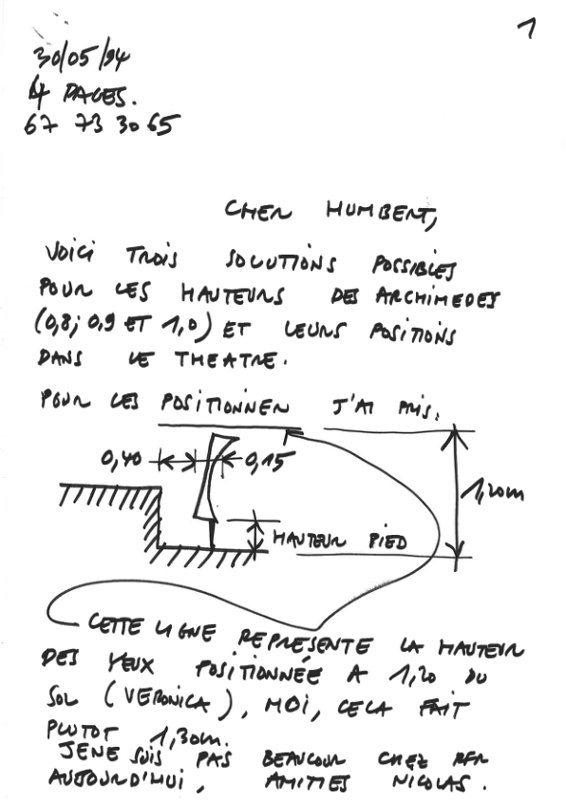 1
30/05/94
4 PAGES.
67 73 30 65
CHER HUMBERT,
VOICI TROIS SOLUTIONS POSSIBLES
POUR LES HAUTEURS DES ARCHIMEDES
(0,8; 0,9 ET 1,0) ET LEURS POSITIONS
DANS LE THEATRE.
POUR LES POSITIONNER J'AI PRIS.
0,40 0,15
1,20m
HAUTEUR PIED
CETTE LIGNE REPRESENTE LA HAUTEUR
DES YEUX POSITIONNÉE A 1,20 DU
SOL (VERONICA), MOI, CELA FAIT
PLUTOT 1,30m.
JE NE SUIS PAS BEAUCOUP CHEZ
AUJOURD'HUI, AMITIES NICOLAS.